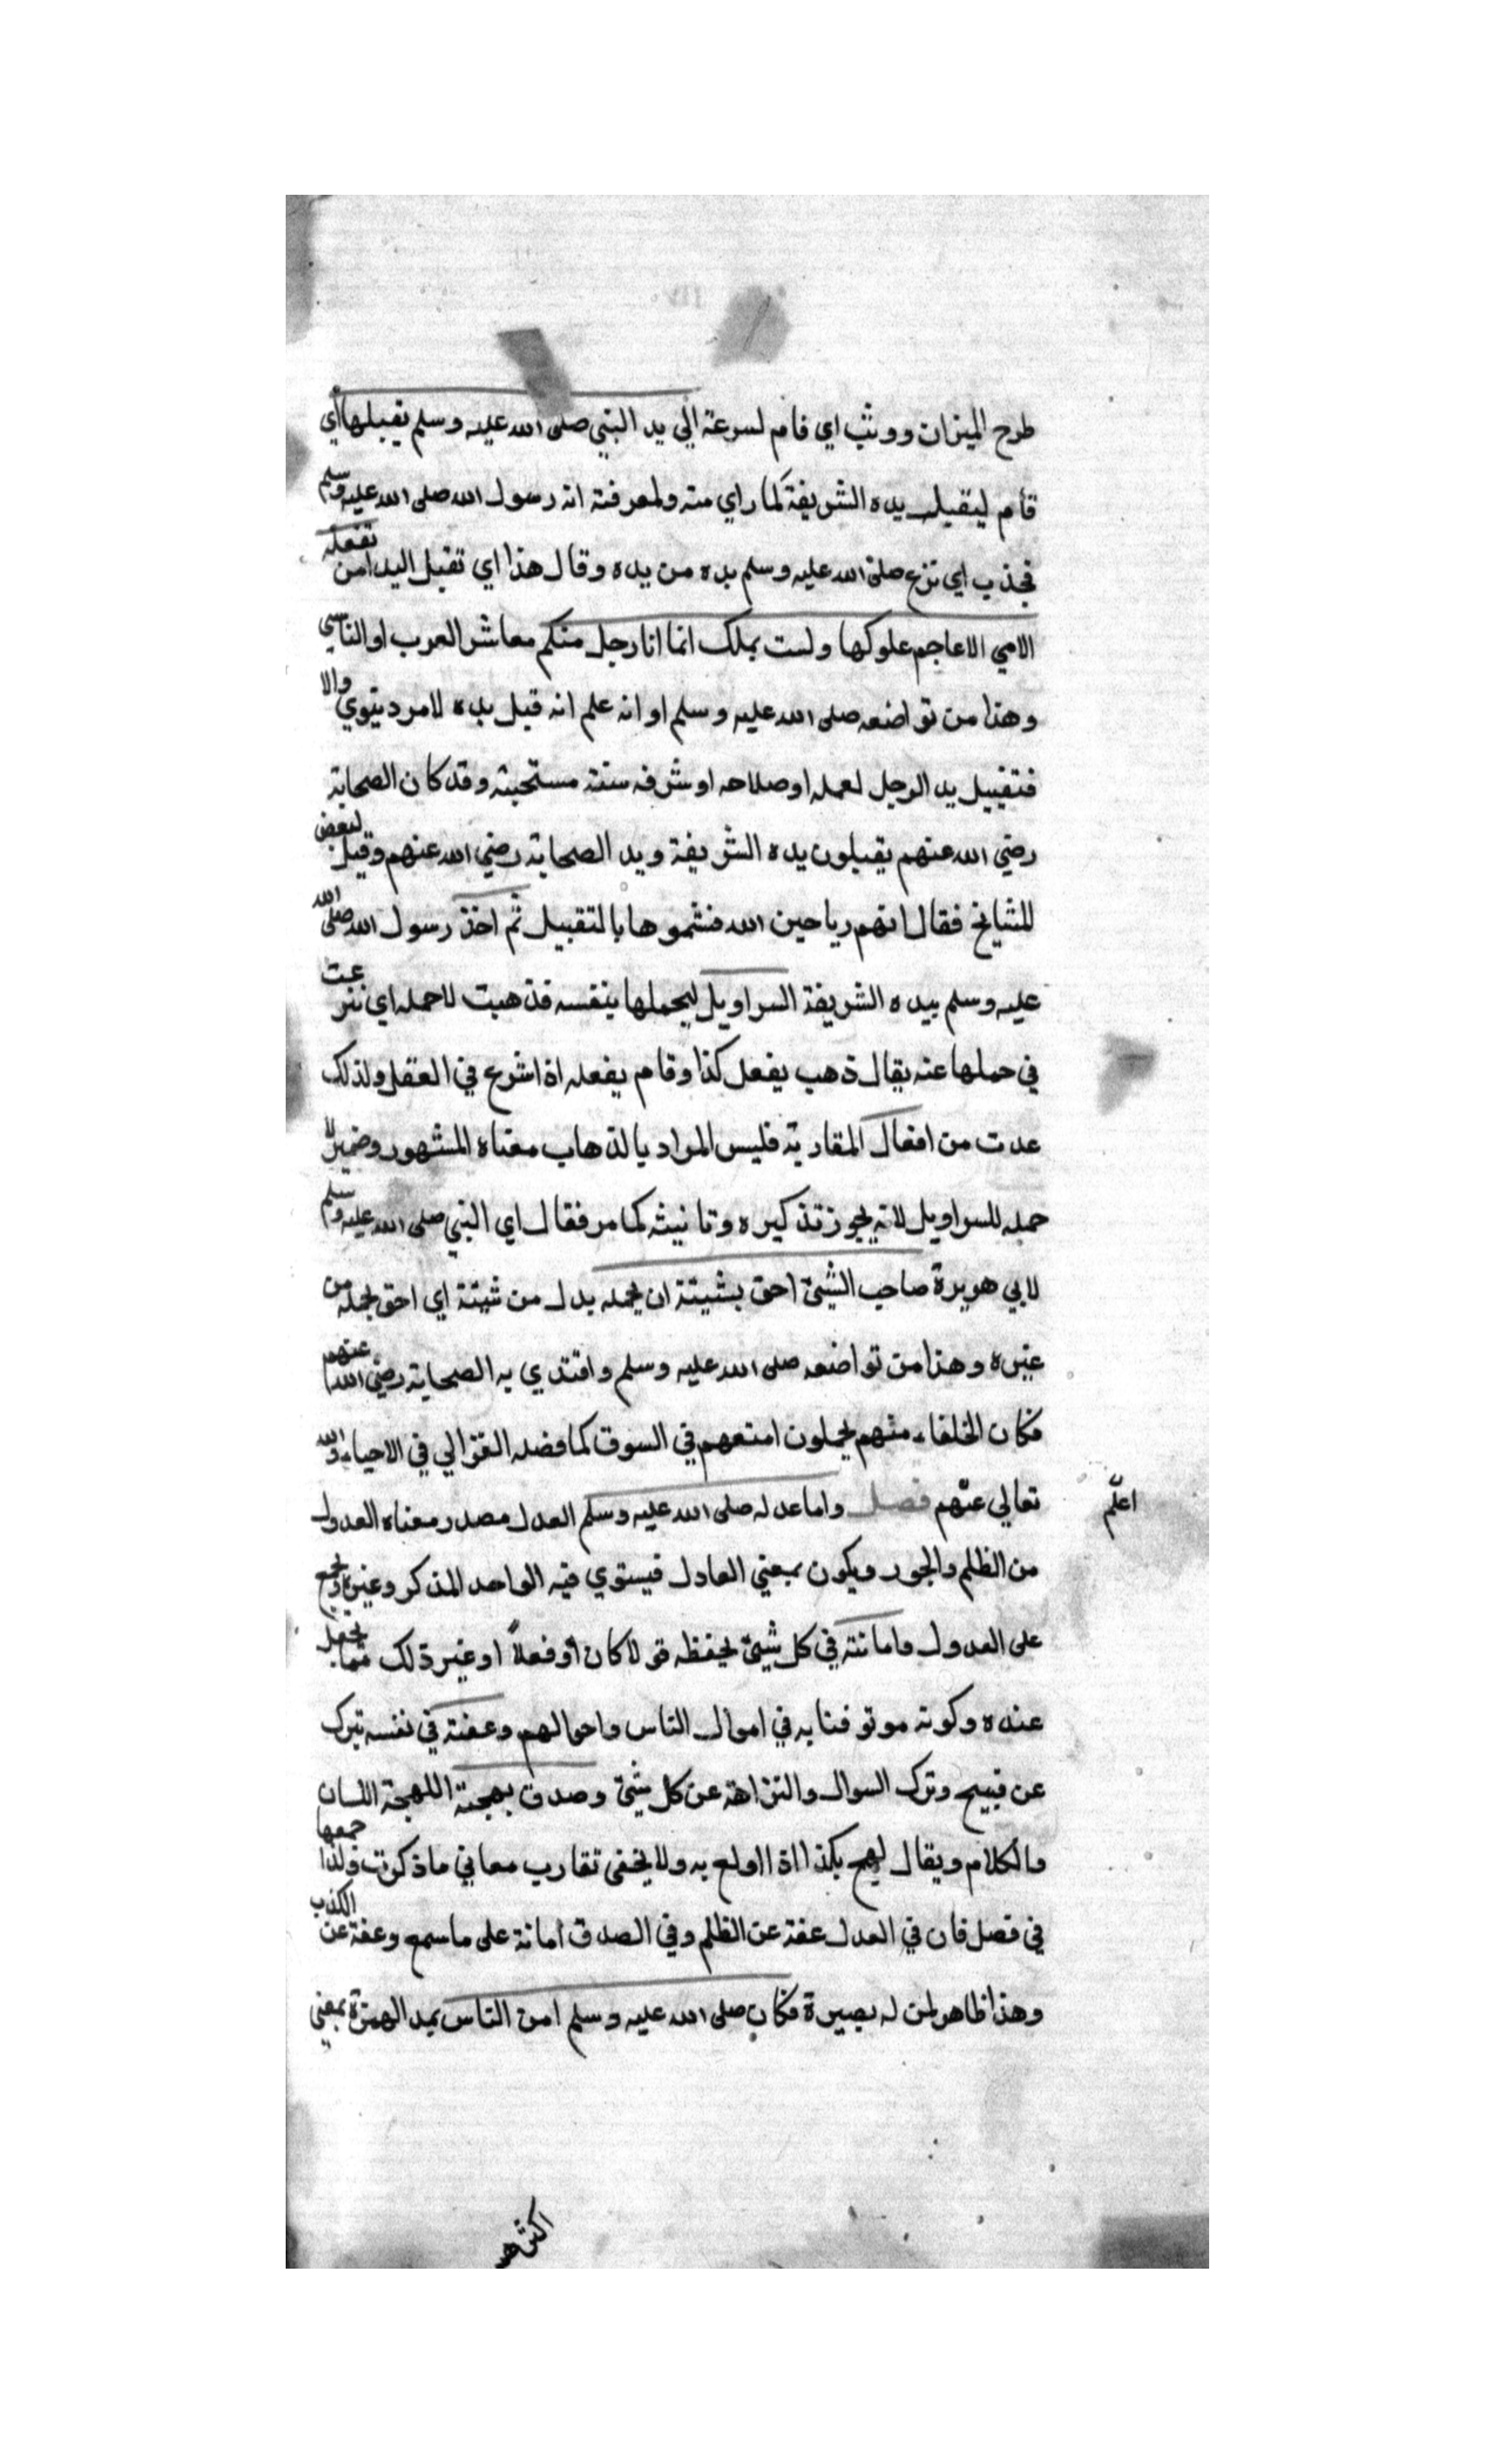 طرح الميزان ووثب اي قام لسرعة الي يد النبي صلى الله عليه وسلم يقبلها اي
قام ليقبل يده الشريفة لما راي منه ولمعرفته انه رسول الله صلى الله عليه وسلم
فجذب اي نزع صلى الله عليه وسلم يده من يده وقال هذا اي تقبيل اليد امن تفعله
الامي الاعاجم علوكها ولست بملك انما انا رجل منكم معاشر العرب او الناس
وهذا من تواضعه صلى الله عليه وسلم او انه علم انه قبل يده لامر دنيوي والا
فتقبيل يد الرجل لعمله او صلاحه او شرفه سنة مستحبة وقد كان الصحابة
رضي الله عنهم يقبلون يده الشريفة ويد الصحابة رضي الله عنهم وقيل لبعض
للمشايخ فقال انهم رياحين الله فشموها بالتقبيل ثم اخذ رسول الله صلى الله
عليه وسلم بيده الشريفة السراويل ليحملها بنفسه فذهبت لاحمله اي شرعت
في حملها عنه يقال ذهب يفعل كذا وقام يفعله اذا شرع في الفعل ولذلك
عدت من افعال المقاربة فليس المراد بالذهاب معناه المشهور وضمير لا
حمله للسراويل لانه يجوز تذكيره وتانيثه كما مر فقال اي النبي صلى الله عليه وسلم
لابي هريرة صاحب الشيئ احق بشيئه ان يحمله بدل من شيئه اي احق بحمله من
غيره وهذا من تواضعه صلى الله عليه وسلم واقتدي به الصحابة رضي الله عنهم
فكان الخلفاء منهم يحملون امتعهم في السوق كما فضله الغزالي في الاحياء والله
اعلم
تعالي عنهم فصل واما عدله صلى الله عليه وسلم العدل مصدر معناه العدول
من الظلم والجور ويكون بمعني العادل فيستوي فيه الواحد المذكر وغيره ويجمع
على العدول وامانته في كل شيئ يحفظه قولا كان او فعلا او غير ذلك مما يجعل
عنده وكونه موثوقا به في اموال الناس واحوالهم وعفته في نفسه تبرك
عن قبيح وترك السوال والنزاهة عن كل شيئ وصدق بهجته اللهجة اللسان
والكلام ويقال لهج بكذا اذا اولع به ولا يخفى تقارب معاني ما ذكرت ولذا جمعها
في فصل فان في العدل عفة عن الظلم وفي الصدق امانة على ما سمع وعفة عن الكذب
وهذا ظاهر لمن له بصيرة فكان صلى الله عليه وسلم امن الناس بمد الهمزة بمعني